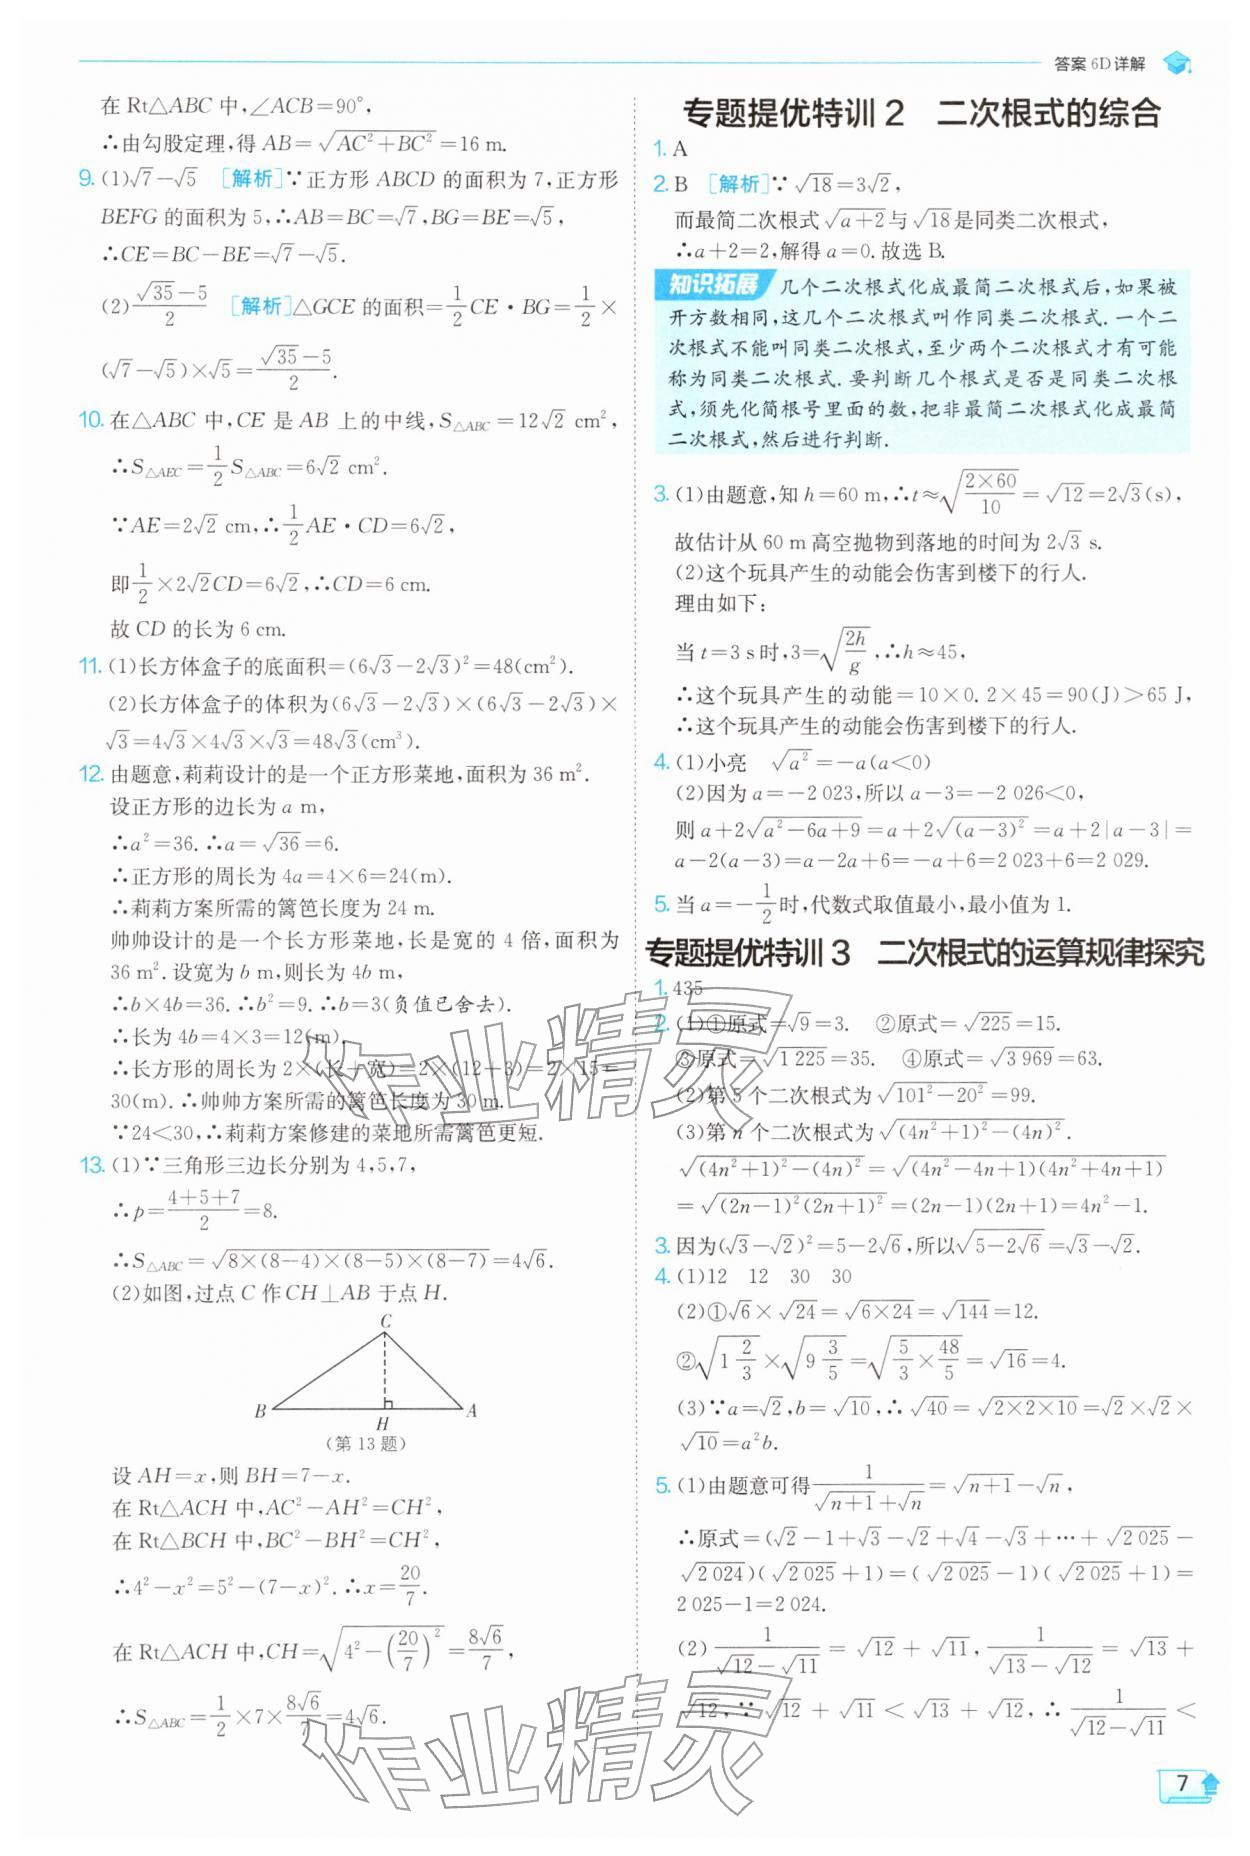 答案 6D 详解
在 Rt△ABC 中,∠ACB=90°,
∴由勾股定理,得 AB=√(AC²+BC²)=16 m.
9. (1)√7-√5 [解析]∵正方形 ABCD 的面积为 7,正方形
BEFG 的面积为 5,∴AB=BC=√7,BG=BE=√5,
∴CE=BC-BE=√7-√5.
(2)(√35-5)/2 [解析]△GCE 的面积=1/2 CE·BG=1/2×
(√7-√5)×√5=(√35-5)/2.
10. 在△ABC 中,CE 是 AB 上的中线,S△ABC=12√2 cm²,
∴S△AEC=1/2 S△ABC=6√2 cm².
∵AE=2√2 cm,∴1/2 AE·CD=6√2,
即1/2×2√2CD=6√2,∴CD=6 cm.
故 CD 的长为 6 cm.
11. (1)长方体盒子的底面积=(6√3-2√3)²=48(cm²).
(2)长方体盒子的体积为(6√3-2√3)×(6√3-2√3)×
√3=4√3×4√3×√3=48√3(cm³).
12. 由题意,莉莉设计的是一个正方形菜地,面积为 36 m².
设正方形的边长为 a m,
∴a²=36.∴a=√36=6.
∴正方形的周长为 4a=4×6=24(m).
∴莉莉方案所需的篱笆长度为 24 m.
帅帅设计的是一个长方形菜地,长是宽的 4 倍,面积为
36 m².设宽为 b m,则长为 4b m,
∴b×4b=36.∴b²=9.∴b=3(负值已舍去).
∴长为 4b=4×3=12(m).
∴长方形的周长为 2×(长+宽)=2×(12+3)=2×15=
30(m).∴帅帅方案所需的篱笆长度为 30 m.
∵24<30,∴莉莉方案修建的菜地所需篱笆更短.
13. (1)∵三角形三边长分别为 4,5,7,
∴p=(4+5+7)/2=8.
∴S△ABC=√(8×(8-4)×(8-5)×(8-7))=4√6.
(2)如图,过点 C 作 CH⊥AB 于点 H.
C
B H A
(第 13 题)
设 AH=x,则 BH=7-x.
在 Rt△ACH 中,AC²-AH²=CH²,
在 Rt△BCH 中,BC²-BH²=CH²,
∴4²-x²=5²-(7-x)².∴x=20/7.
在 Rt△ACH 中,CH=√(4²-(20/7)²)=8√6/7,
∴S△ABC=1/2×7×8√6/7=4√6.
专题提优特训 2 二次根式的综合
1. A
2. B [解析]∵√18=3√2,
而最简二次根式√(a+2)与√18是同类二次根式,
∴a+2=2,解得 a=0.故选 B.
知识拓展 几个二次根式化成最简二次根式后,如果被
开方数相同,这几个二次根式叫作同类二次根式.一个二
次根式不能叫同类二次根式,至少两个二次根式才有可能
称为同类二次根式.要判断几个根式是否是同类二次根
式,须先化简根号里面的数,把非最简二次根式化成最简
二次根式,然后进行判断.
3. (1)由题意,知 h=60 m,∴t≈√((2×60)/10)=√12=2√3(s),
故估计从 60 m 高空抛物到落地的时间为 2√3 s.
(2)这个玩具产生的动能会伤害到楼下的行人.
理由如下:
当 t=3 s时,3=√(2h/g),∴h≈45,
∴这个玩具产生的动能=10×0.2×45=90(J)>65 J,
∴这个玩具产生的动能会伤害到楼下的行人.
4. (1)小亮 √(a²)=-a(a<0)
(2)因为 a=-2 023,所以 a-3=-2 026<0,
则 a+2√(a²-6a+9)=a+2√((a-3)²)=a+2|a-3|=
a-2(a-3)=a-2a+6=-a+6=2 023+6=2 029.
5. 当 a=-1/2时,代数式取值最小,最小值为 1.
专题提优特训 3 二次根式的运算规律探究
1. 435
2. (1)①原式=√9=3. ②原式=√225=15.
③原式=√1 225=35. ④原式=√3 969=63.
(2)第 5 个二次根式为√(101²-20²)=99.
(3)第 n 个二次根式为√((4n²+1)²-(4n)²).
√((4n²+1)²-(4n)²)=√((4n²-4n+1)(4n²+4n+1))
=√((2n-1)²(2n+1)²)=(2n-1)(2n+1)=4n²-1.
3. 因为(√3-√2)²=5-2√6,所以√(5-2√6)=√3-√2.
4. (1)12 12 30 30
(2)①√6×√24=√(6×24)=√144=12.
②√(1 2/3)×√(9 3/5)=√(5/3×48/5)=√16=4.
(3)∵a=√2,b=√10,∴√40=√(2×2×10)=√2×√2×
√10=a²b.
5. (1)由题意可得1/(√(n+1)+√n)=√(n+1)-√n,
∴原式=(√2-1+√3-√2+√4-√3+…+√2 025-
√2 024)(√2 025+1)=(√2 025-1)(√2 025+1)=
2 025-1=2 024.
(2)1/(√12-√11)=√12+√11,1/(√13-√12)=√13+
√12,∵√12+√11<√13+√12,∴1/(√12-√11)<
7
作业精灵
作业精灵